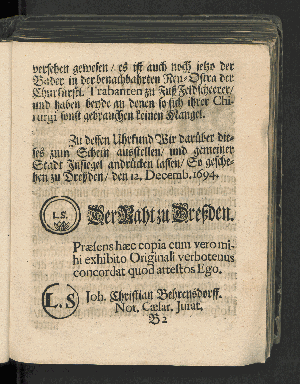 versehen gewesen / es ist auch noch jetzo der
Bader in der benachbahrten Neu-Ostra der
Churfürstl. Trabanten zu Fuß Feldscheerer /
und haben beyde an denen so sich ihrer Chi-
rurgi sonst gebrauchen keinen Mangel.
Zu dessen Uhrkund Wir darüber die-
ses zum Schein ausstellen / und gemeiner
Stadt Insiegel andrücken lassen / So gesche-
hen zu Dreßden / den 12. Decemb. 1694.
L.S. Der Raht zu Dreßden.
Præsens hæc copia cum vero mi-
hi exhibito Originali verbotenus
concordat quod attestos Ego.
L.S Joh. Christian Behrensdorff.
Not. Cæsar. Jurat.
B2